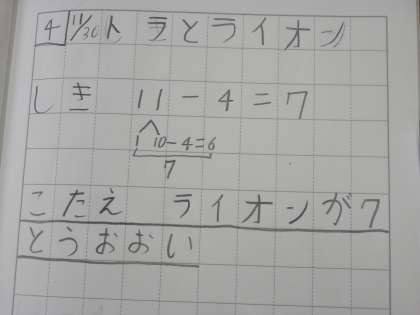 4 11/30 トラとライオン
しき 11-4=7
1 10-4=6
7
こたえ ライオンが7
とうおおい